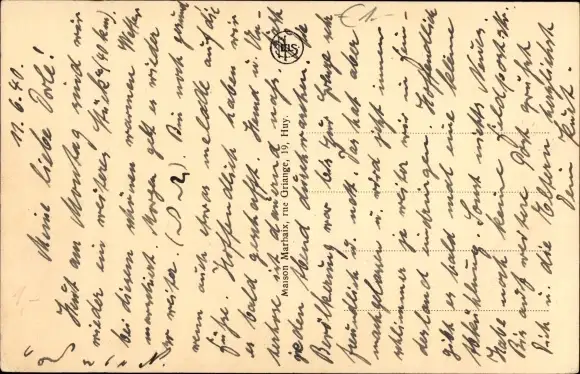 11.6.40
Meine liebe Dorle!
Heut am Montag sind wir
wieder ein weiteres Stück (40 km)
bei diesem schönen warmen Wetter
marschiert. Morgen geht es wieder
weiter. Bin noch gesund
wenn auch etwas malade auf die
Füße. Hoffentlich haben wir
es bald geschafft. Hemd u. Un-
terhose ist dauernd naß.
jeden Abend durchwaschen. Die
Bevölkerung war bis zur Grenze sehr
freundlich u. nett. Das hat aber
nachgelassen u. wird jetzt immer
schlimmer je weiter wir in Fein-
desland eindringen. Hoffentlich
gibt es bald mal eine kleine
Abkühlung. Sonst nichts Neues.
Habe noch keine Feldpostnr.
Bis auf weitere Post grüßt
Dich u. die Eltern herzlichst
Dein Kurt.
Maison Marbaix, rue Griange, 19, Huy.
€ 1.-
1.-